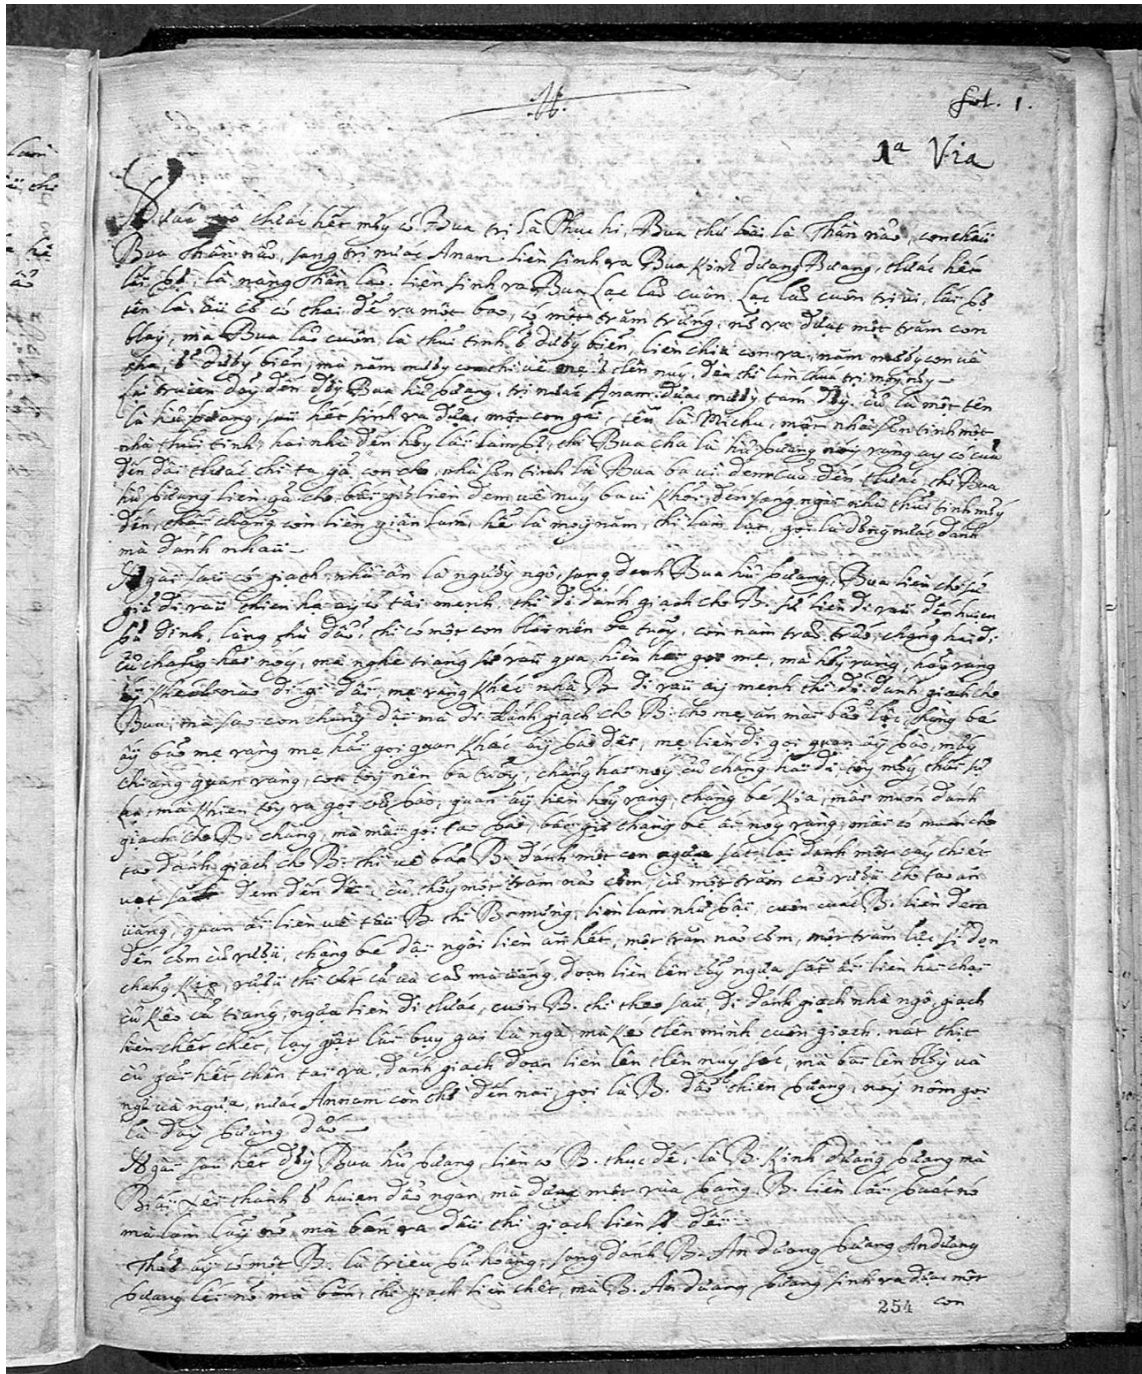 fol. 1.
1ª Via
chúas hết mấy có Bua trị là Phục hi, Bua thứ hai là Thần nâo, con cháu
Bua Thần nâo, sang trị nước Anam liên sinh ra Bua Kinh dương Bương, chước hết
lâi là nàng Thần lão. liên sinh ra Bua Lạc Lão cuôn. Lạc Lão cuôn trị vì, lâi
tên là âu cơ có thai đẻ ra một bao, có một trăm trứng, nở ra được một trăm con
blai, mà Bua lão cuôn, là thủi tinh ở dưới biển, liên chia con ra, năm mười con về
cha, ở dưới biển, mà năm mười con thì về mẹ ở tlên núi, đều thì làm chúa trị mọi nơi
lại truièn dõy đến đời Bua hù bương, trị nước Anam được mười tám đời cũ là một tên
là hù bương, sau hết sinh ra được một con gái, tên là Michu, một nhà sơn tinh một
nhà thủi tinh, hai nhà đến hỏy lấi làm, thì Bua cha là hù bương nói rằng ai có của
đến đâi chước thì ta gả con cho, nhà sơn tinh là Bua ba vì đem của đến chước, thì Bua
hù bương liên gả cho, bấi giờ liên đem về núi ba vì khỏi, đến sang ngài nhà thủi tinh mới
đến, thấi chảng còn liên giận lắm, hễ là mọi năm, thì làm lụt, gọi là dõng nước đánh
mà đánh nhau
Ngài sau có giạch nhà ân là người ngô, sang đánh Bua hù bương, Bua liên cho sứ
giả đi rao thiên hạ ai có tài mạnh thì đi đánh giạch cho B. sứ liên đi rao đến huiện
đinh, làng phù đâỏ, thì có một con blai nên ba tuổi, còn nằm trão trâo, chảng hai đi
cũ chảng hai nói, mà nghe tiang sứ rao qua, liên hai gọi mẹ, mà hỏi rằng, hỏi rằng
khách nào đi gì đấi, mẹ rằng khéc nhà B. đi rao ai mạnh thì đi đánh giạch cho
Bua, mà sao con chảng dậi mà đi đánh giạch cho B. cho mẹ ăn mài bão lộc, thàng bé
ấi bảo mẹ rằng mẹ hải gọi quan khác ấi bào đâi, mẹ liên đi gọi quan ấi bao, mấi
chiang quan rằng, con tôi nên ba tuổi, chảng hai nói cũ chảng hai đi tôi mấi thấi sự
lạ, mà khiến tôi ra gọi oũ bào, quan ấi liên hỏi rằng, thàng bé kia, mâi muốn đánh
giạch cho B. chăng, mà mâi gọi tao bào, bấi giờ thàng bé ấi nói rằng, mâi có muốn cho
tao đánh giạch cho B. thì về bảo B. đánh một con ngựa sắt, lại đánh một cái chiéc
vọt sắt đem đến đâi, cũ thõi một trăm nào cơm, cũ một trăm cào rượu cho tao ăn
uâng, quan ấi liên về tâu B. thì B. mừng, liên làm như bậi, cuôn cuac B. liên đem
đến cơm cũ rượu, thàng bé dậi ngồi liên ăn hết, một trăm nào cơm, một trăm lực sĩ dọn
chảng kip, rượu thì cất cả và cào mà uâng, đoạn liên lên cữi ngựa sắt ấi liên hai chai
cũ kéo cả tiang, ngựa liên đi chước, cuôn B. thì theo sau, đi đánh giạch nhà ngô, giạch
liên chết chéc, lấi giật lấi bụi gai là ngà mà kéo tlên mình cuôn giạch. nát thịt
cũ gãi hết chên tai ra. đánh giạch đoạn liên lên tlên núi sóc, mà bai lên blời và
ngài và ngựa, nước Annam còn thờ đến nai, gọi là B. dão thiên bương, nói nôm gọi
là doỹ bương dão
Ngài sau hết đời Bua hù bương, liên có B. thục đế, là B. Kinh dương bương mà
B. ấi xêi thành ở huiẹn đâo ngàn, mà được một rùa bàng. B. liên lấi buốt nó
mà làm lãi nỏ, mà bắn ra đâu thì giạch liên sợ đấi
Thuở ấi có một B. là triệu bũ hoàng, sang đánh B. An dương bương Andương
bương lấi nỏ mà bắn, thì giạch liên chết, mà B. An dương bương sinh ra được một
254 con